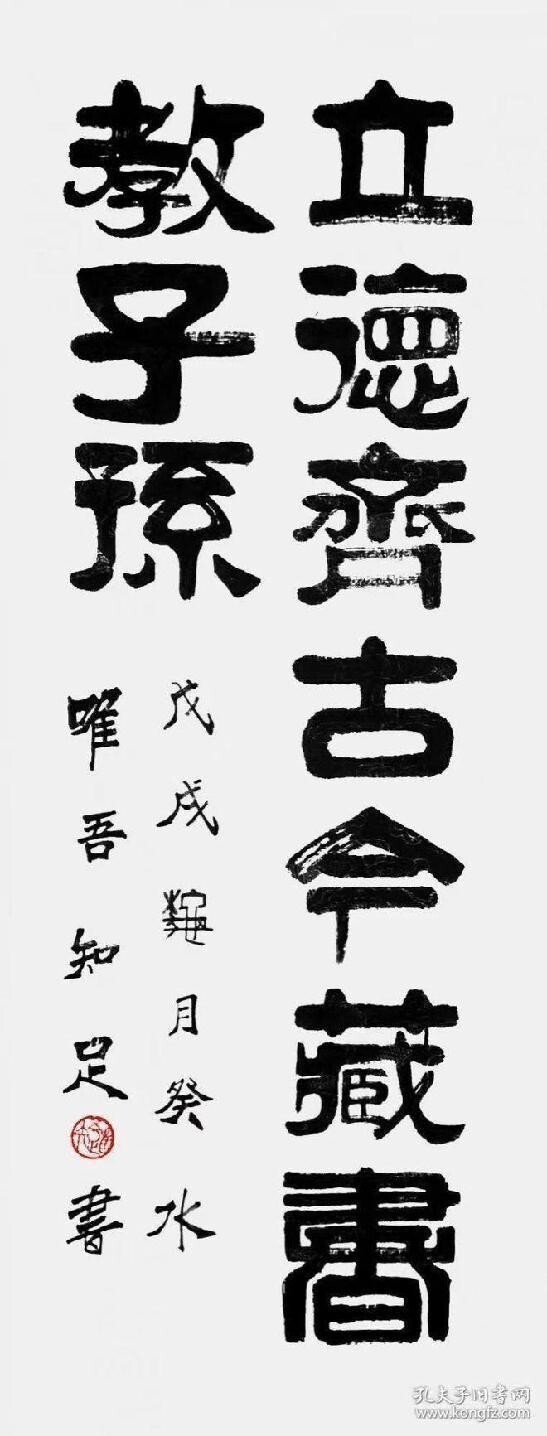 立德齊古今藏書
教子孫
戊戌 月癸水
唯吾知足書
孔夫子旧书网
www.kongfz.com